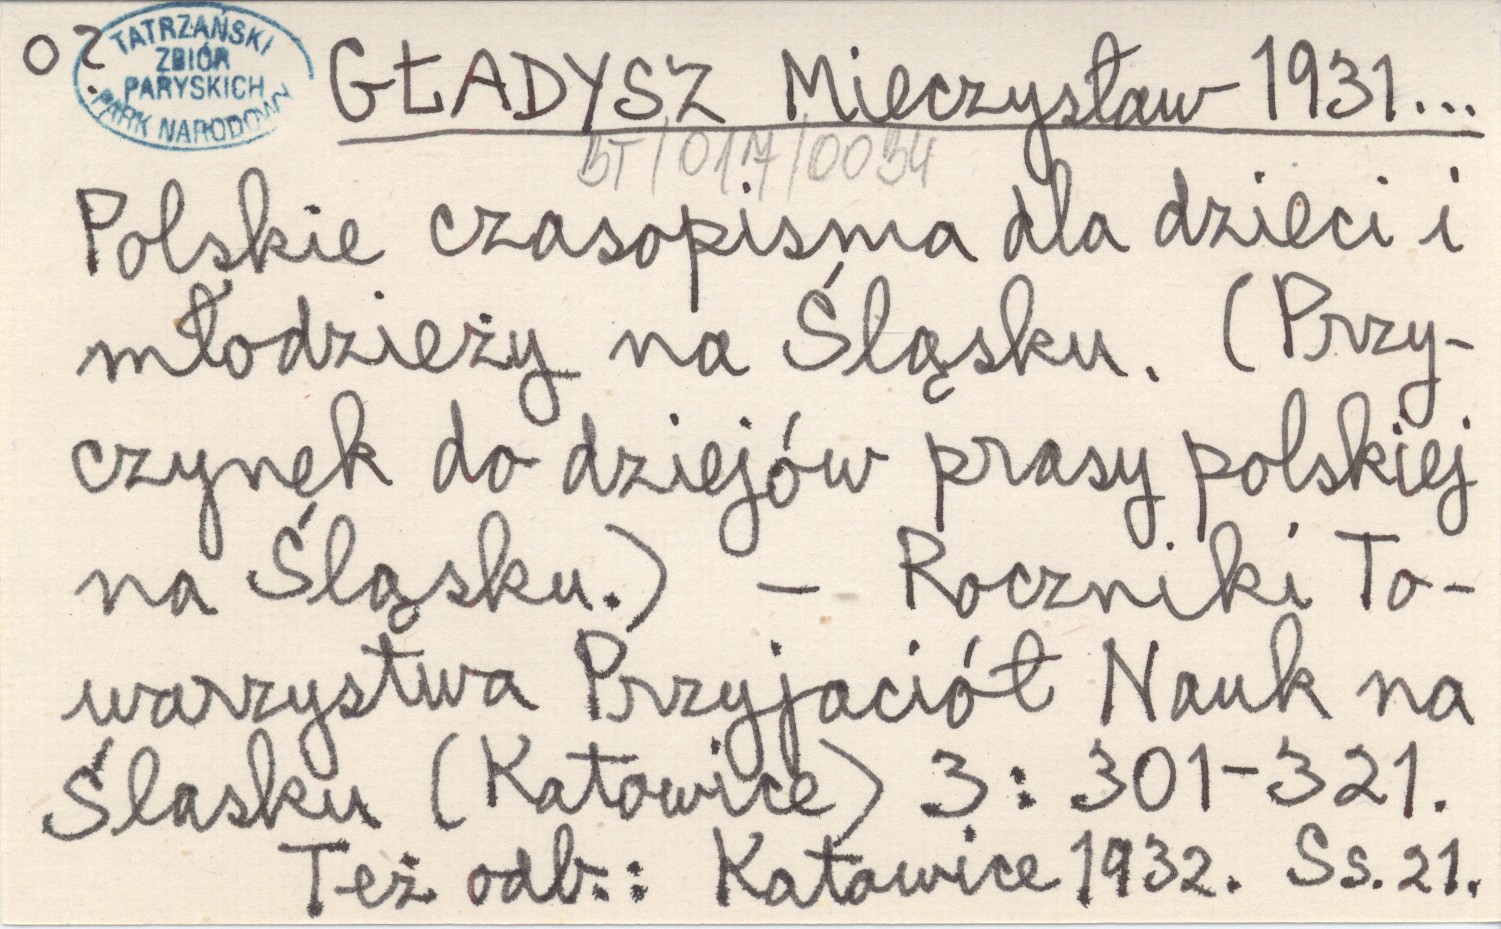 02.
TATRZAŃSKI
ZBIÓR
PARYSKICH
PARK NARODOWY
GŁADYSZ Mieczysław 1931...
BT/017/0034
Polskie czasopisma dla dzieci i
młodzieży na Śląsku. (Przy-
czynek do dziejów prasy polskiej
na Śląsku.) – Roczniki To-
warzystwa Przyjaciół Nauk na
Śląsku (Katowice) 3: 301-321.
Też odb.: Katowice 1932. Ss. 21.